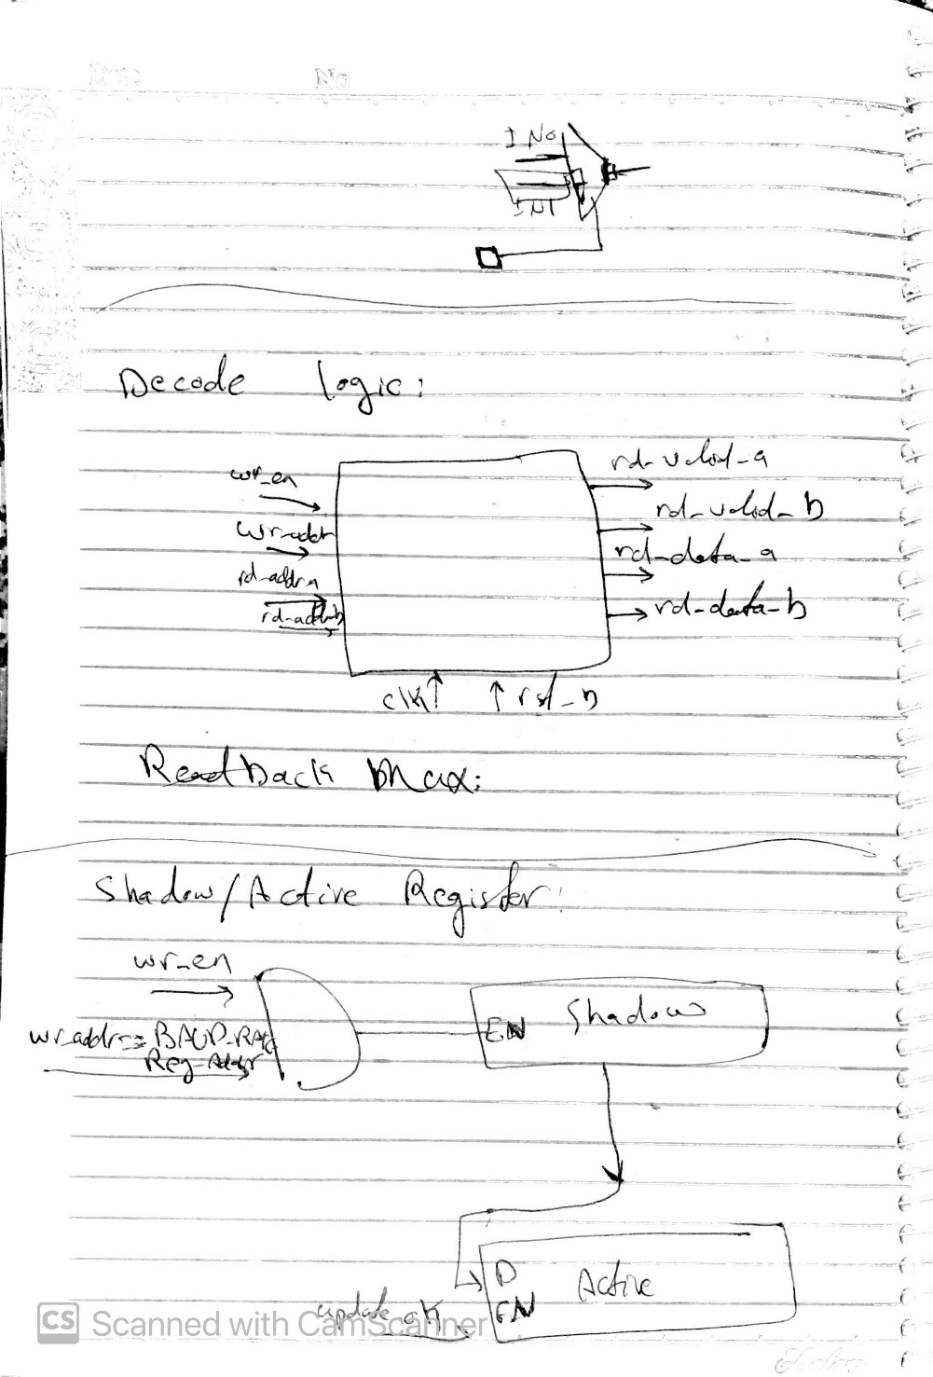 IN0
IN1
Decode logic:
wr_en
wr_addr
rd_addr_a
rd_addr_b
rd_valid_a
rd_valid_b
rd_data_a
rd_data_b
clk
rst_n
Readback Mux:
Shadow/Active Register:
wr_en
wr_addr==BAUD_RATE
Reg_Addr
EN Shadow
D Active
EN
update_ok
CS Scanned with CamScanner